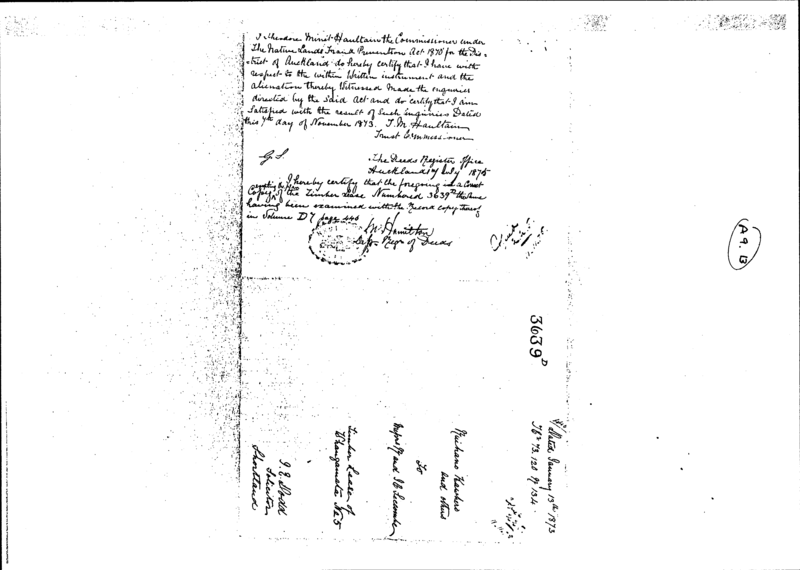 I Theodore Minet Haultain the Commissioner under
The Native Lands Fraud Prevention Act 1870 for the Dis-
trict of Auckland do hereby certify that I have with
respect to the within Written instrument and the
alienation thereby Witnessed Made the enquiries
directed by the said Act and do certify that I am
Satisfied with the result of such inquiries Dated
this 7th day of November 1873. T. M. Haultain
Trust Commissioner
The Deeds Register Office
Auckland July 1875
I hereby certify that the foregoing is a Correct
Copy of the Timber lease Numbered 3639D the same
having been examined with the Record copy thereof
in Volume D7 page 446
Hamilton
Depy Regr of Deeds
A9.B
3639D
Dated January 13th 1873
73.120 134
and others
to
and
Timber Lease of
Whangamata No 5
J. E. Dodd
Solicitor
Shortland